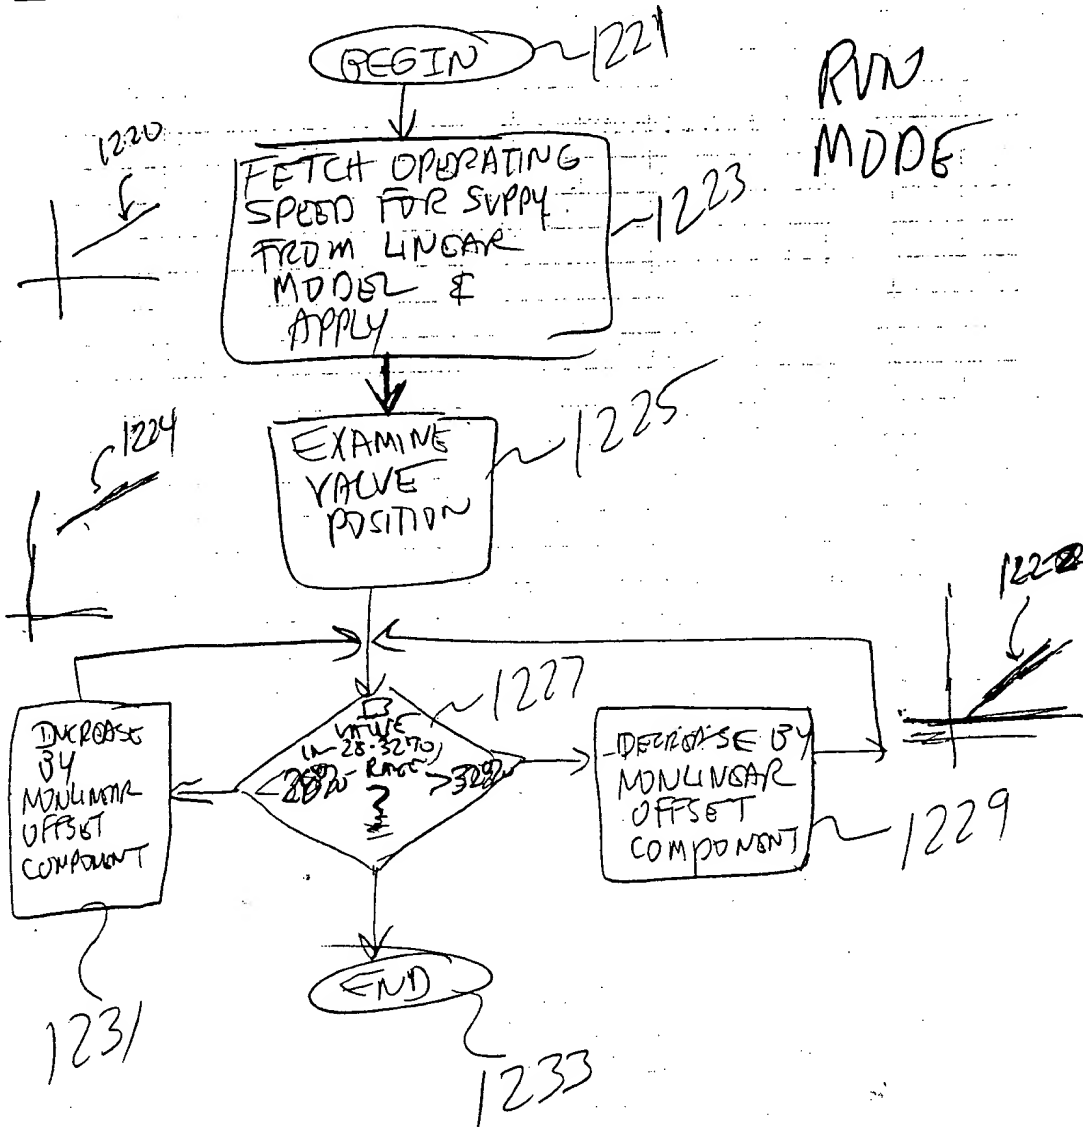 BEGIN
1221
RUN
MODE
1220
FETCH OPERATING
SPEED FOR SUPPY
FROM LINEAR
MODEL &
APPLY
1223
1224
EXAMINE
VALVE
POSITION
1225
1222
1227
IS
VALVE
IN 28-32%
<28% RANGE >32%
?
INCREASE
BY
NONLINEAR
OFFSET
COMPONENT
1231
DECREASE BY
NONLINEAR
OFFSET
COMPONENT
1229
END
1233